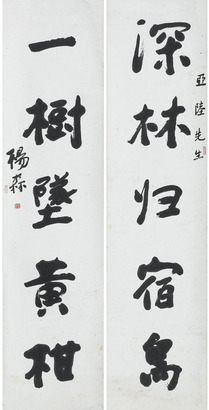 亞陸先生
深林归宿鳥
一樹墜黃柑
楊森